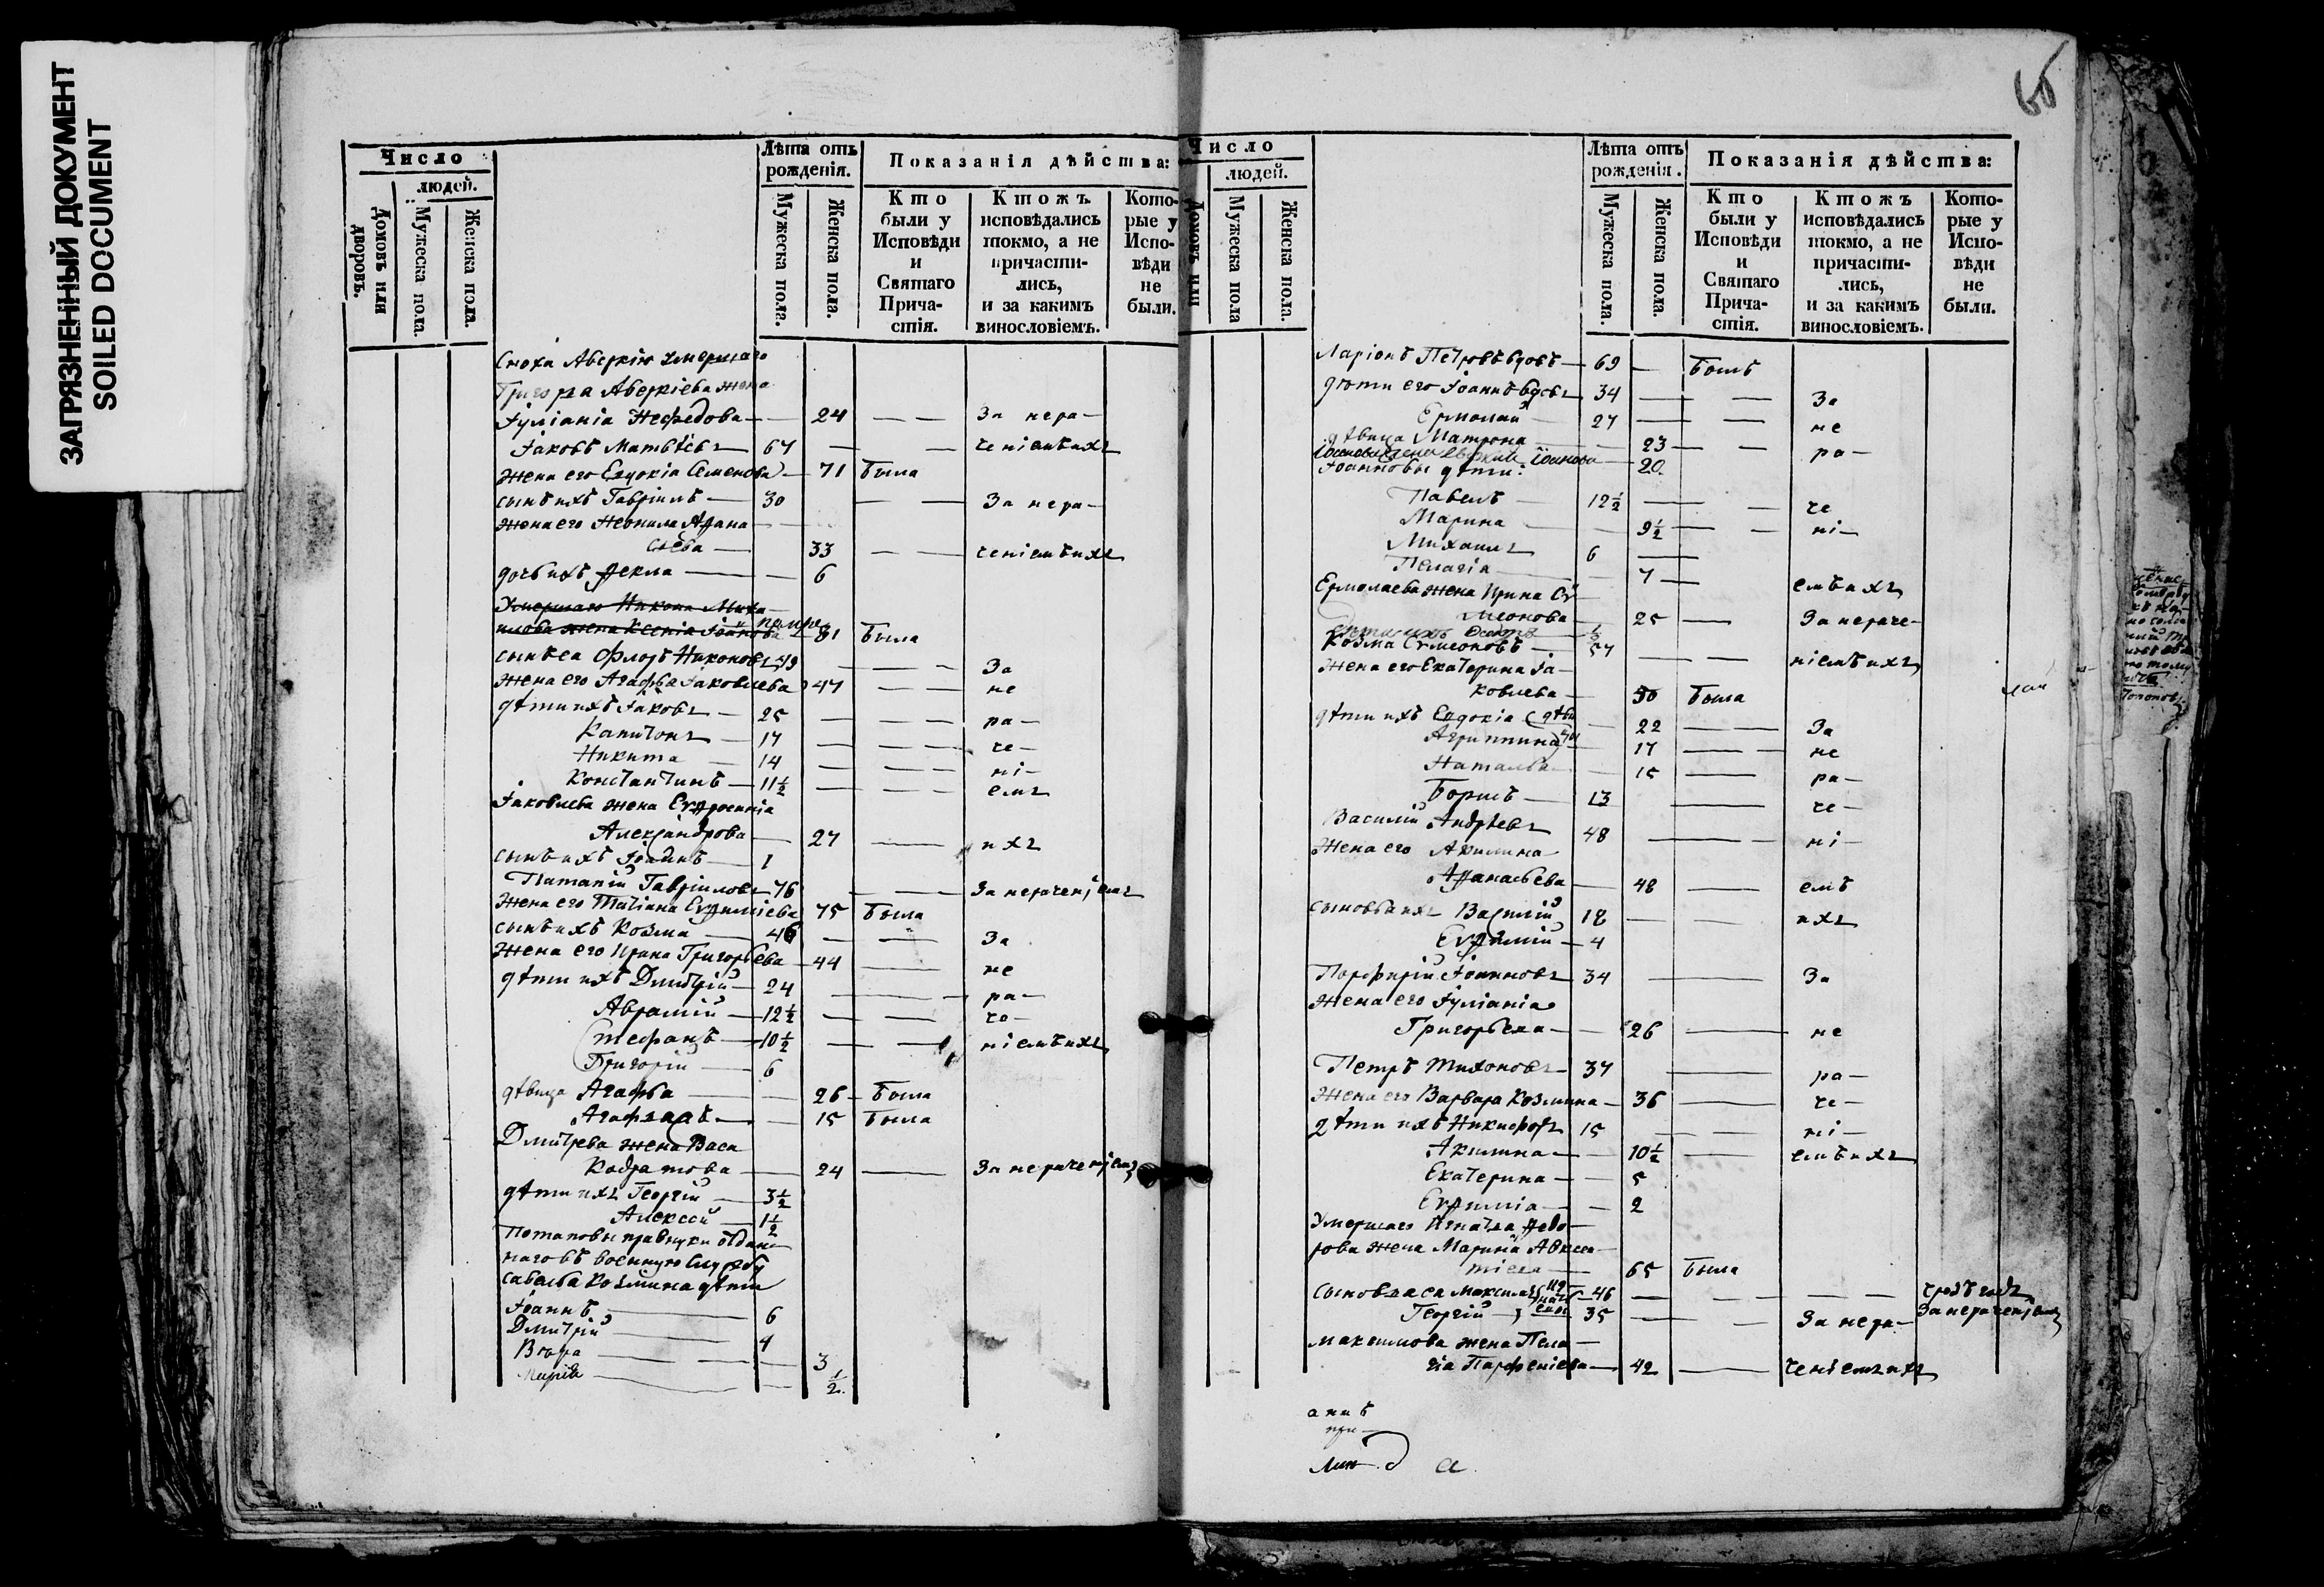 ЗАГРЯЗНЕННЫЙ ДОКУМЕНТ
SOILED DOCUMENT
Число
людей.
Домовъ или дворовъ.
Мужеска пола.
Женска пола.
Лѣта отъ рожденія.
Мужеска пола.
Женска пола.
Показанія дѣйства:
Кто были у Исповѣди и Святаго Причастія.
Ктожъ исповѣдались токмо, а не причастились, и за какимъ винословіемъ.
Которые у Исповѣди не были.
Сноха Аверкію умершаго
Григорья Аверкіева жена
Іуліанія Нефедова — 24 — — За нера-
Іаковъ Матвѣевъ 67 — — ченіемъ ихъ
жена его Евдокія Семенова — 71 была
сынъ ихъ Гавріилъ — 30 — — За нера-
жена его Неонила Афана
сьева — 33 — — ченіемъ ихъ
дочь ихъ Фекла — 6
Умершаго Никона Миха-
илова жена Ксенія Іоаннова — 81 была
сынъ еа Флоръ Никоновъ 49 — — За
жена его Агафья Іаковлева 47 — — не
дѣти ихъ Іаковъ — 25 — — ра-
Капитонъ — 17 — — че-
Никита — 14 — — ні-
Константинъ — 11½ — — емъ
Іаковлева жена Евфросинія
Александрова — 27 — ихъ
сынъ ихъ Іоаннъ — 1
Патапій Гавріиловъ 76 — — За нераченіемъ
жена его Татіана Евфиміева 75 была
сынъ ихъ Козма — 46 — — За
жена его Ирина Григорьева — 44 — не
дѣти ихъ Димитрій — 24 — — ра-
Аврамій — 12½ — — че-
Стефанъ — 10½ — — ніемъ ихъ
Григорій — 6
дѣвица Агафья — 26 — была
Агафья — 15 была
Дмитрева жена Васа
Кодратова — 24 — За нераченіемъ
дѣти ихъ Георгій — 3½
Алексей — 1½
Потаповы правнуки отдан
наго въ военную службу
савелья Козмина дѣти
Іоаннъ — 6
Дмитрій — 4
Вѣра — 3
Марія — ½
66
Число
людей.
Домовъ или
Мужеска пола
Женска пола.
Лѣта отъ рожденія.
Мужеска пола.
Женска пола.
Показанія дѣйства:
Кто были у Исповѣди и Святаго Причастія.
Ктожъ исповѣдались токмо, а не причастились, и за какимъ винословіемъ.
Которые у Исповѣди не были.
Ларіонъ Петровъ вдовъ — 69 — былъ
дѣти его Іоаннъ вдовъ 34 — — За
Ермолай — 27 — — не
дѣвица Матрона — 23 — — ра-
Іоаннова 20
Іоанновы дѣти:
Павелъ — 12½ — — че
Марина — 9½ — — ні-
Михаилъ 6 —
Пелагія — 7 — емъ ихъ
Ермолаева жена Ирина Сѵ
меонова — 25 — За нераче-
½
Козма Сѵмеоновъ — 57 — — ніемъ ихъ
жена его Екатерина Іа-
ковлева — 50 была
дѣти ихъ Евдокія — 22 — За
Агриппина — 17 — — не
Наталья — 15 — ра-
Борисъ — 13 — че-
Василій Андреевъ 48 — ні-
жена его Акилина
Афанасьева — 48 — емъ
сыновья ихъ Василій 18 — — ихъ
Евфимій — 4
Порфирій Іоанновъ 34 — За
жена его Іуліанія
Григорьева — 26 — не
Петръ Тихоновъ — 37 — ра-
жена его Варвара Козмина — 36 — че-
дѣти ихъ Никифоръ 15 — — ні-
Акилина — 10½ — емъ ихъ
Екатерина — 5
Евфимія — 2
Умершаго Игнатья Федо-
рова жена Марина Авксен-
тіева — 65 была
сыновья еа Максимъ 46 — — —
Георгій — 35 — — За нера- За нераченіемъ
максимова жена Пела-
гіа Парфеніева — 42 — ченіемъ ихъ